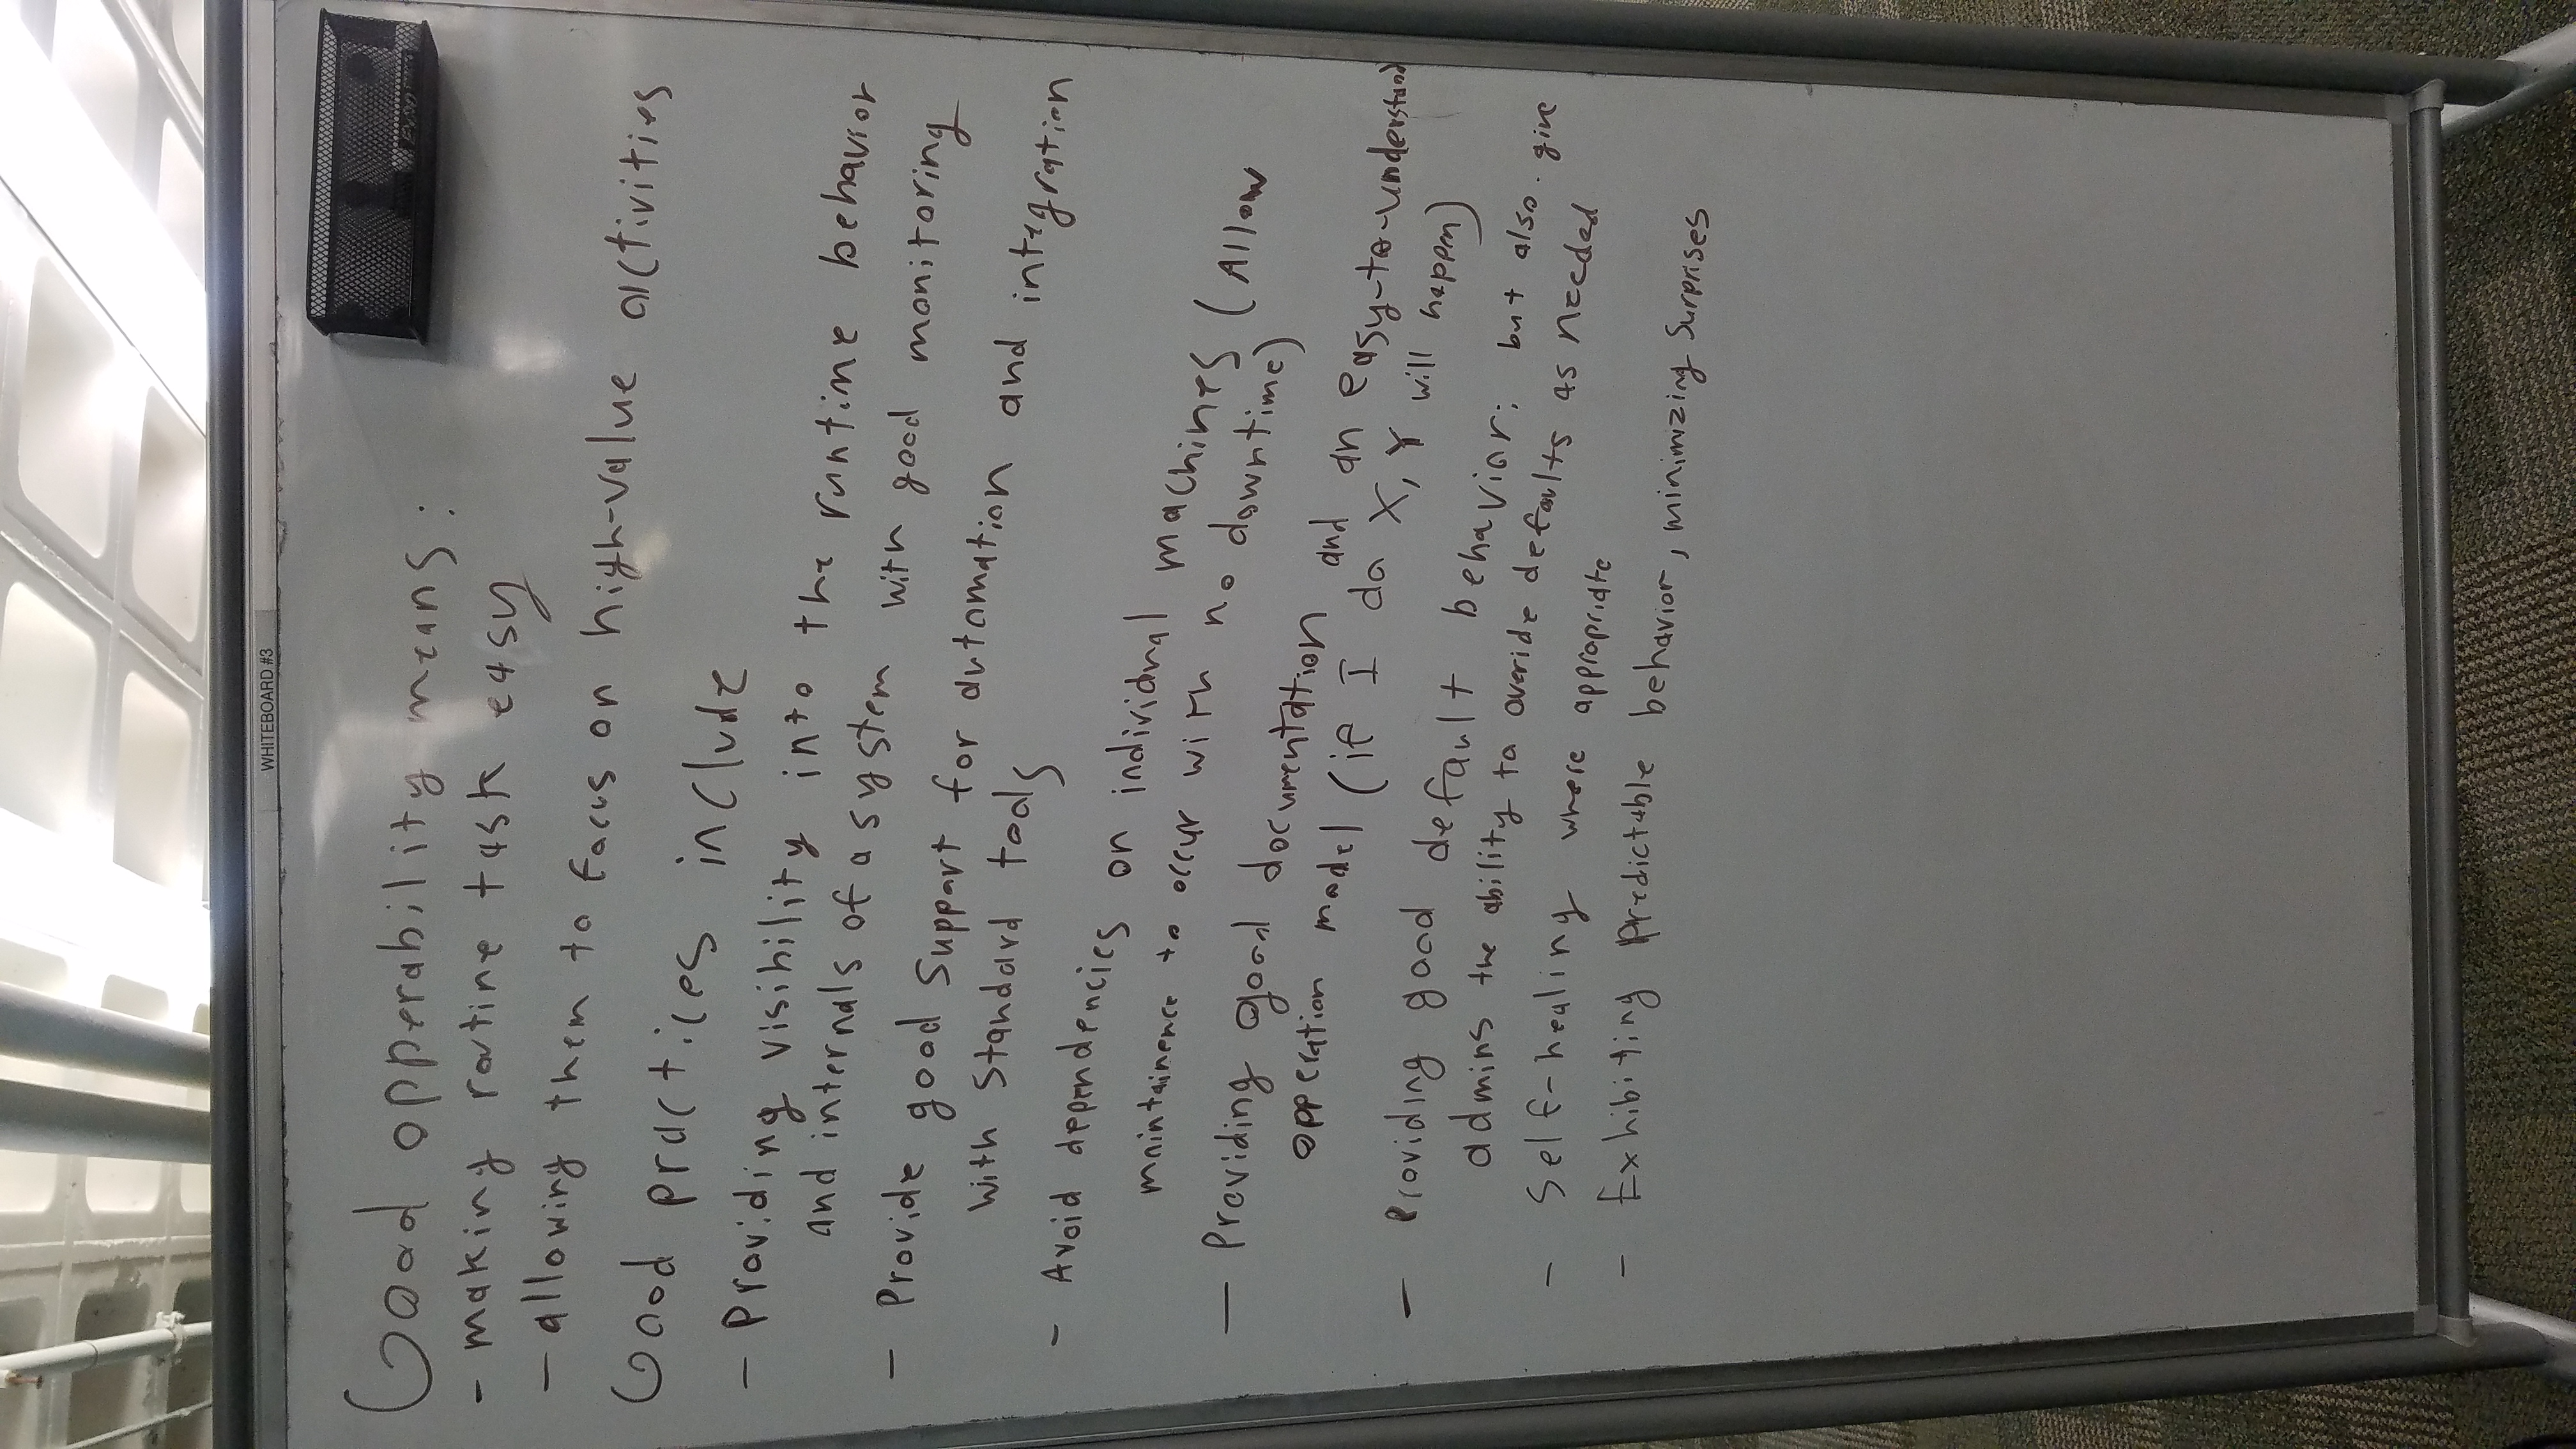 WHITEBOARD #3
EXPO
Good opperability means:
- making routine task easy
- allowing them to focus on high-value activities
Good practices include
- Providing visibility into the runtime behavior
and internals of a system with good monitoring
- Provide good support for automation and integration
with standard tools
- Avoid dependencies on individual machines (Allow
maintainence to occur with no downtime)
- Providing good documentation and an easy-to-understand
opperation model (if I do X, Y will happen)
- Providing good default behavior; but also give
admins the ability to overide defaults as needed
- Self-healing where appropriate
- Exhibiting predictable behavior, minimizing surprises